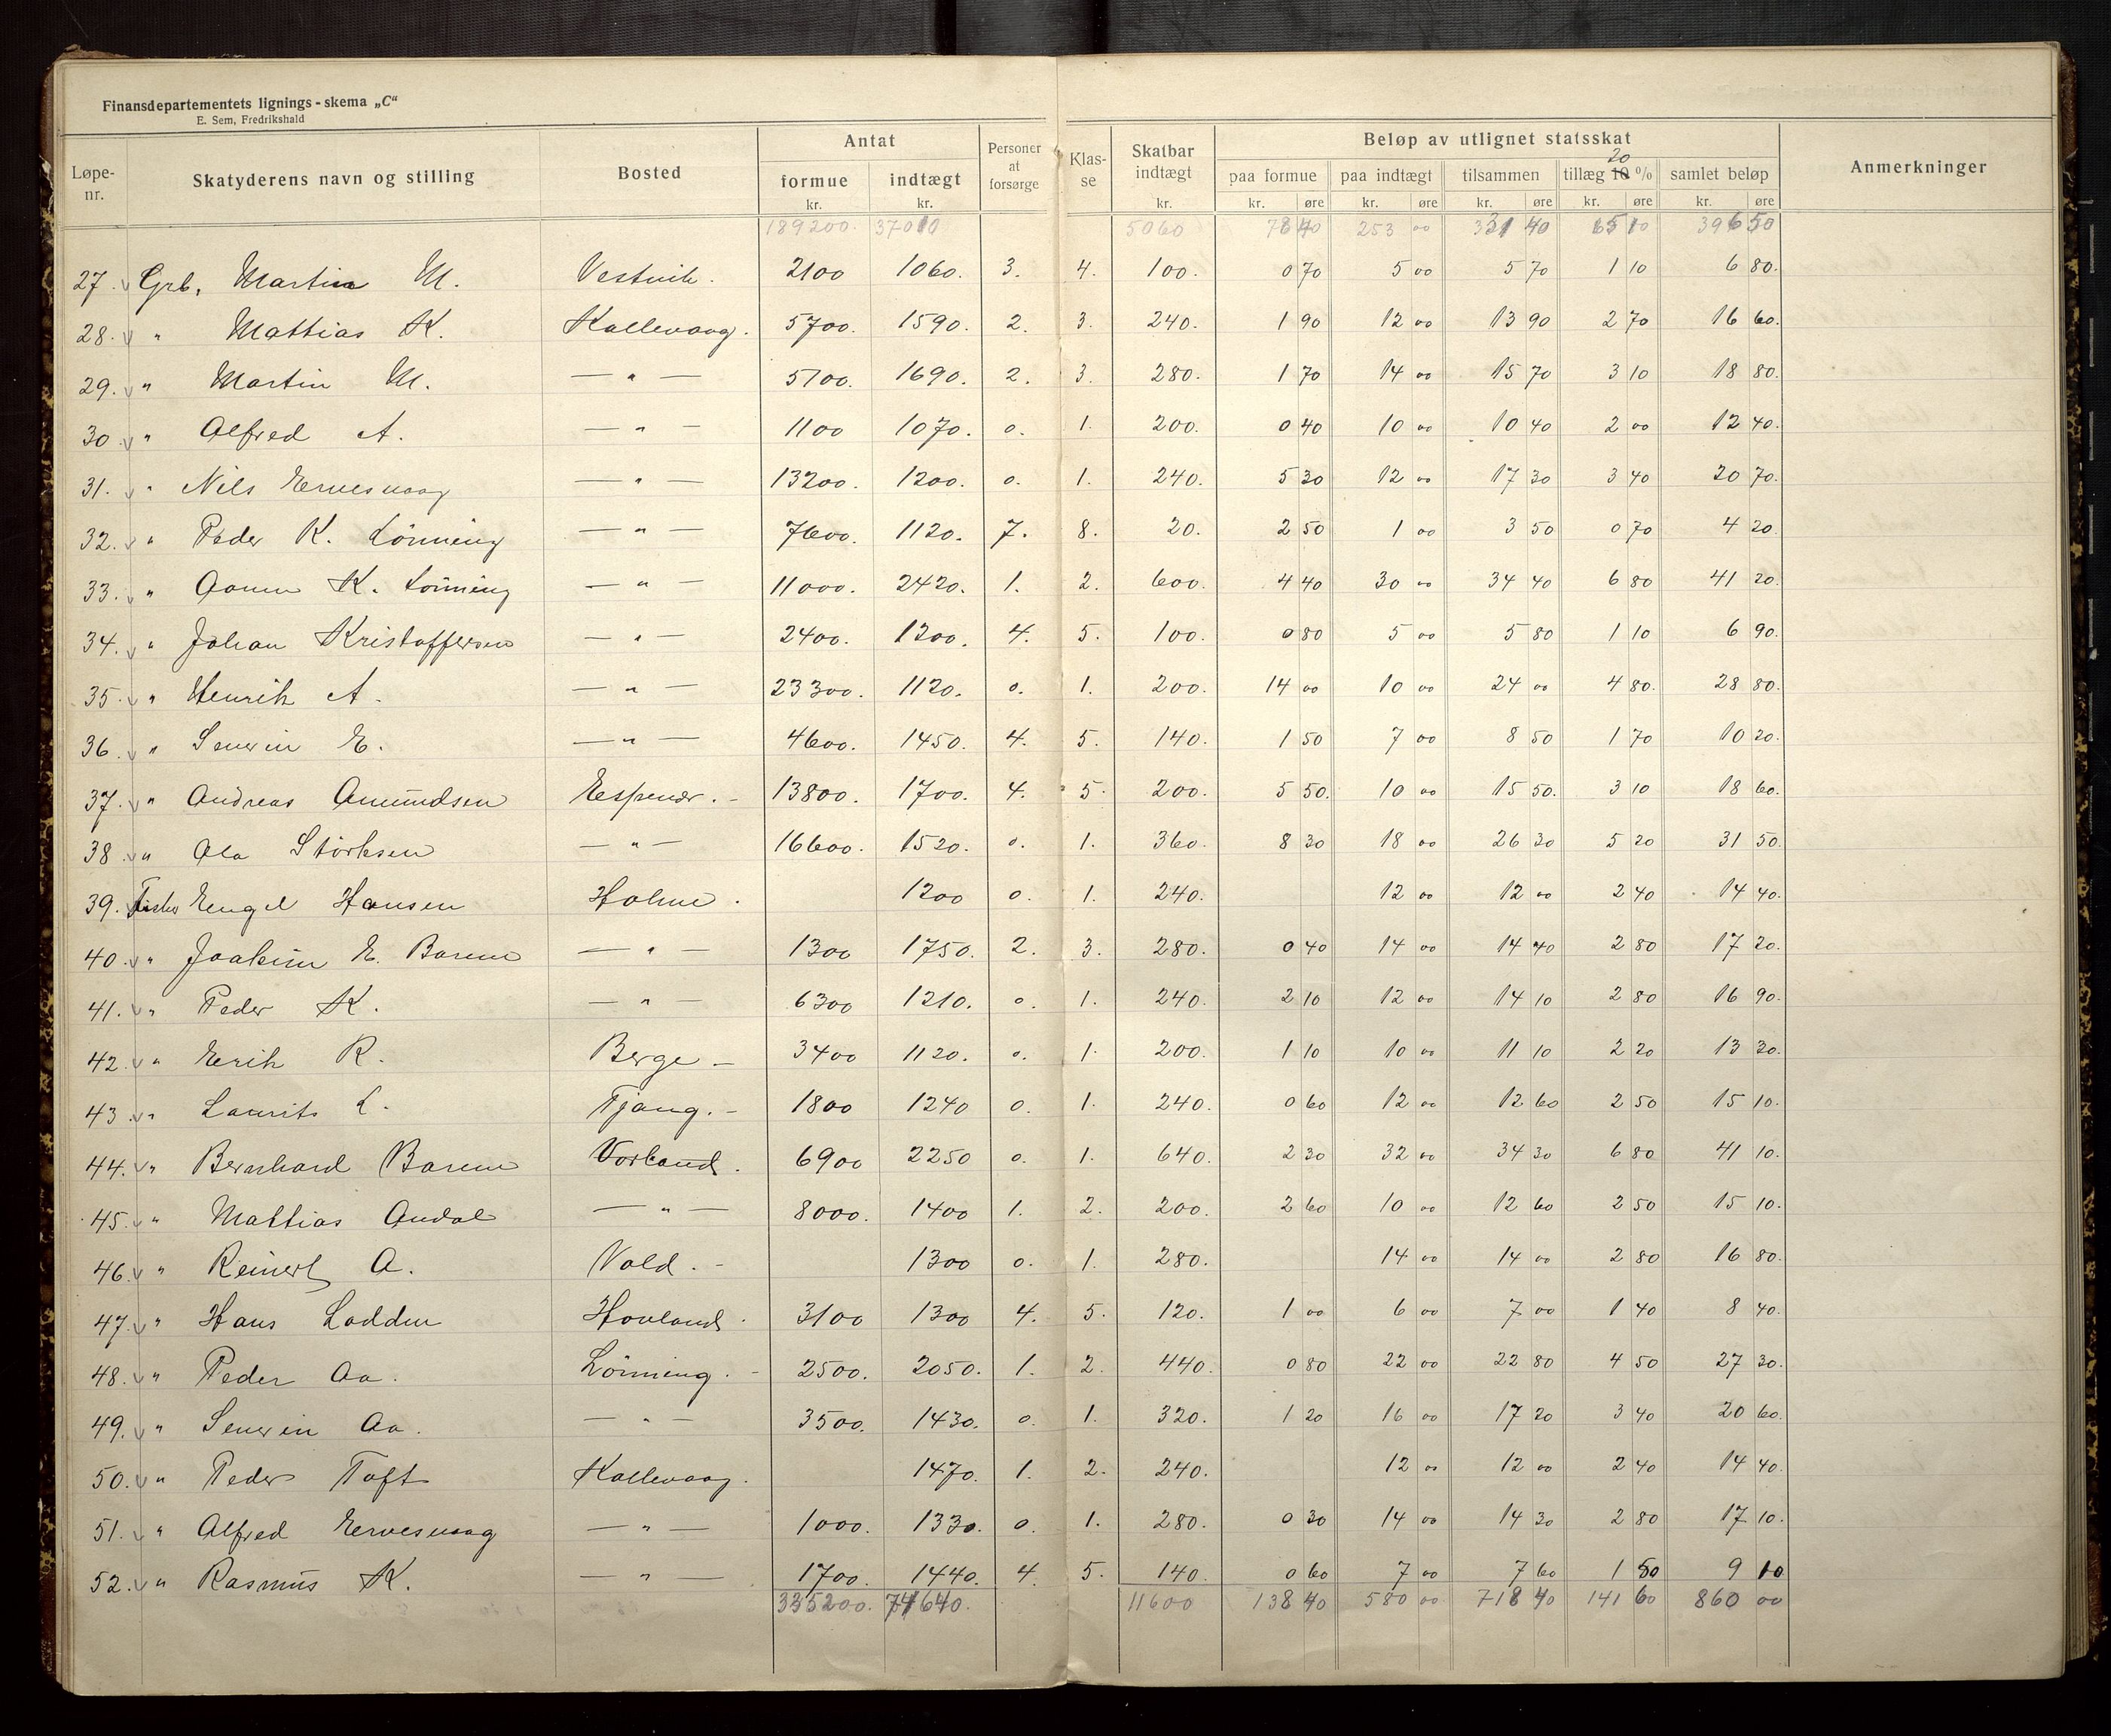 Finansdepartementets lignings-skema „C“
E. Sem, Fredrikshald
Løpe-nr. Skatyderens navn og stilling Bosted Antat formue kr. Antat indtægt kr. Personer at forsørge Klas-se Skatbar indtægt kr. Beløp av utlignet statsskat paa formue kr. øre paa indtægt kr. øre tilsammen kr. øre tillæg 10 20 % kr. øre samlet beløp kr. øre Anmerkninger
189200. 37010 5060 78 40 253 00 331 40 65 10 396 50
27. Grb. Martin M. Vestvik. 2100 1060. 3. 4. 100. 0 70 5 00 5 70 1 10 6 80.
28. " Mattias K. Kallevaag. 5700. 1590. 2. 3. 240. 1 90 12 00 13 90 2 70 16 60.
29. " Martin M. — " — 5100. 1690. 2. 3. 280. 1 70 14 00 15 70 3 10 18 80.
30. " Alfred A. — " — 1100 1070. 0. 1. 200. 0 40 10 00 10 40 2 00 12 40.
31. " Nils Ervesvaag — " — 13200. 1200. 0. 1. 240. 5 30 12 00 17 30 3 40 20 70.
32. " Peder K. Lönning — " — 7600. 1120. 7. 8. 20. 2 50 1 00 3 50 0 70 4 20.
33. " Aamu K. Lönning — " — 11000. 2420. 1. 2. 600. 4 40 30 00 34 40 6 80 41 20.
34. " Johan Kristoffersen — " — 2400. 1200. 4. 5. 100. 0 80 5 00 5 80 1 10 6 90.
35. " Henrik A. — " — 23300. 1120. 0. 1. 200. 14 00 10 00 24 00 4 80. 28 80.
36. " Severin E. — " — 4600. 1450. 4. 5. 140. 1 50 7 00 8 50 1 70 10 20.
37. " Andreas Amundsen Espevær. 13800. 1700. 4. 5. 200. 5 50. 10 00 15 50. 3 10 18 60.
38. " Ola Störksen — " — 16600. 1520. 0. 1. 360. 8 30 18 00 26 30 5 20 31 50.
39. Fisker Engel Hansen Holme. 1200 0. 1. 240. 12 00 12 00 2 40 14 40.
40. " Joakim E. Barene — " — 1300 1750. 2. 3. 280. 0 40 14 00 14 40 2 80 17 20.
41. " Peder K. — " — 6300 1210. 0. 1. 240. 2 10 12 00 14 10 2 80 16 90.
42. " Erik R. Berge 3400 1120. 0. 1. 200. 1 10 10 00 11 10 2 20 13 30.
43. " Laurits L. Tjong. 1800 1240 0. 1. 240. 0 60 12 00 12 60 2 50 15 10.
44. " Bernhard Barene Vorland. 6900 2250 0. 1. 640. 2 30 32 00 34 30 6 80 41 10.
45. " Mattias Andal — " — 8000. 1400 1. 2. 200. 2 60 10 00 12 60 2 50 15 10.
46. " Reinert A. Vold. 1300 0. 1. 280. 14 00 14 00 2 80 16 80.
47. " Hans Lodden Hovland. 3100 1300 4. 5. 120. 1 00 6 00 7 00 1 40 8 40.
48. " Peder Aa. Lönning. 2500. 2050. 1. 2. 440. 0 80 22 00 22 80 4 50 27 30.
49. " Severin Aa. — " — 3500. 1430. 0. 1. 320. 1 20 16 00 17 20 3 40 20 60.
50. " Peder Toft Kallevaag. 1470. 1. 2. 240. 12 00 12 00 2 40 14 40.
51. " Alfred Ervesvaag — " — 1000. 1330. 0. 1. 280. 0 30 14 00 14 30 2 80 17 10.
52. " Rasmus K. — " — 1700. 1440. 4. 5. 140. 0 60 7 00 7 60 1 50 9 10
335200. 74640. 11600 138 40 580 00 718 40 141 60 860 00